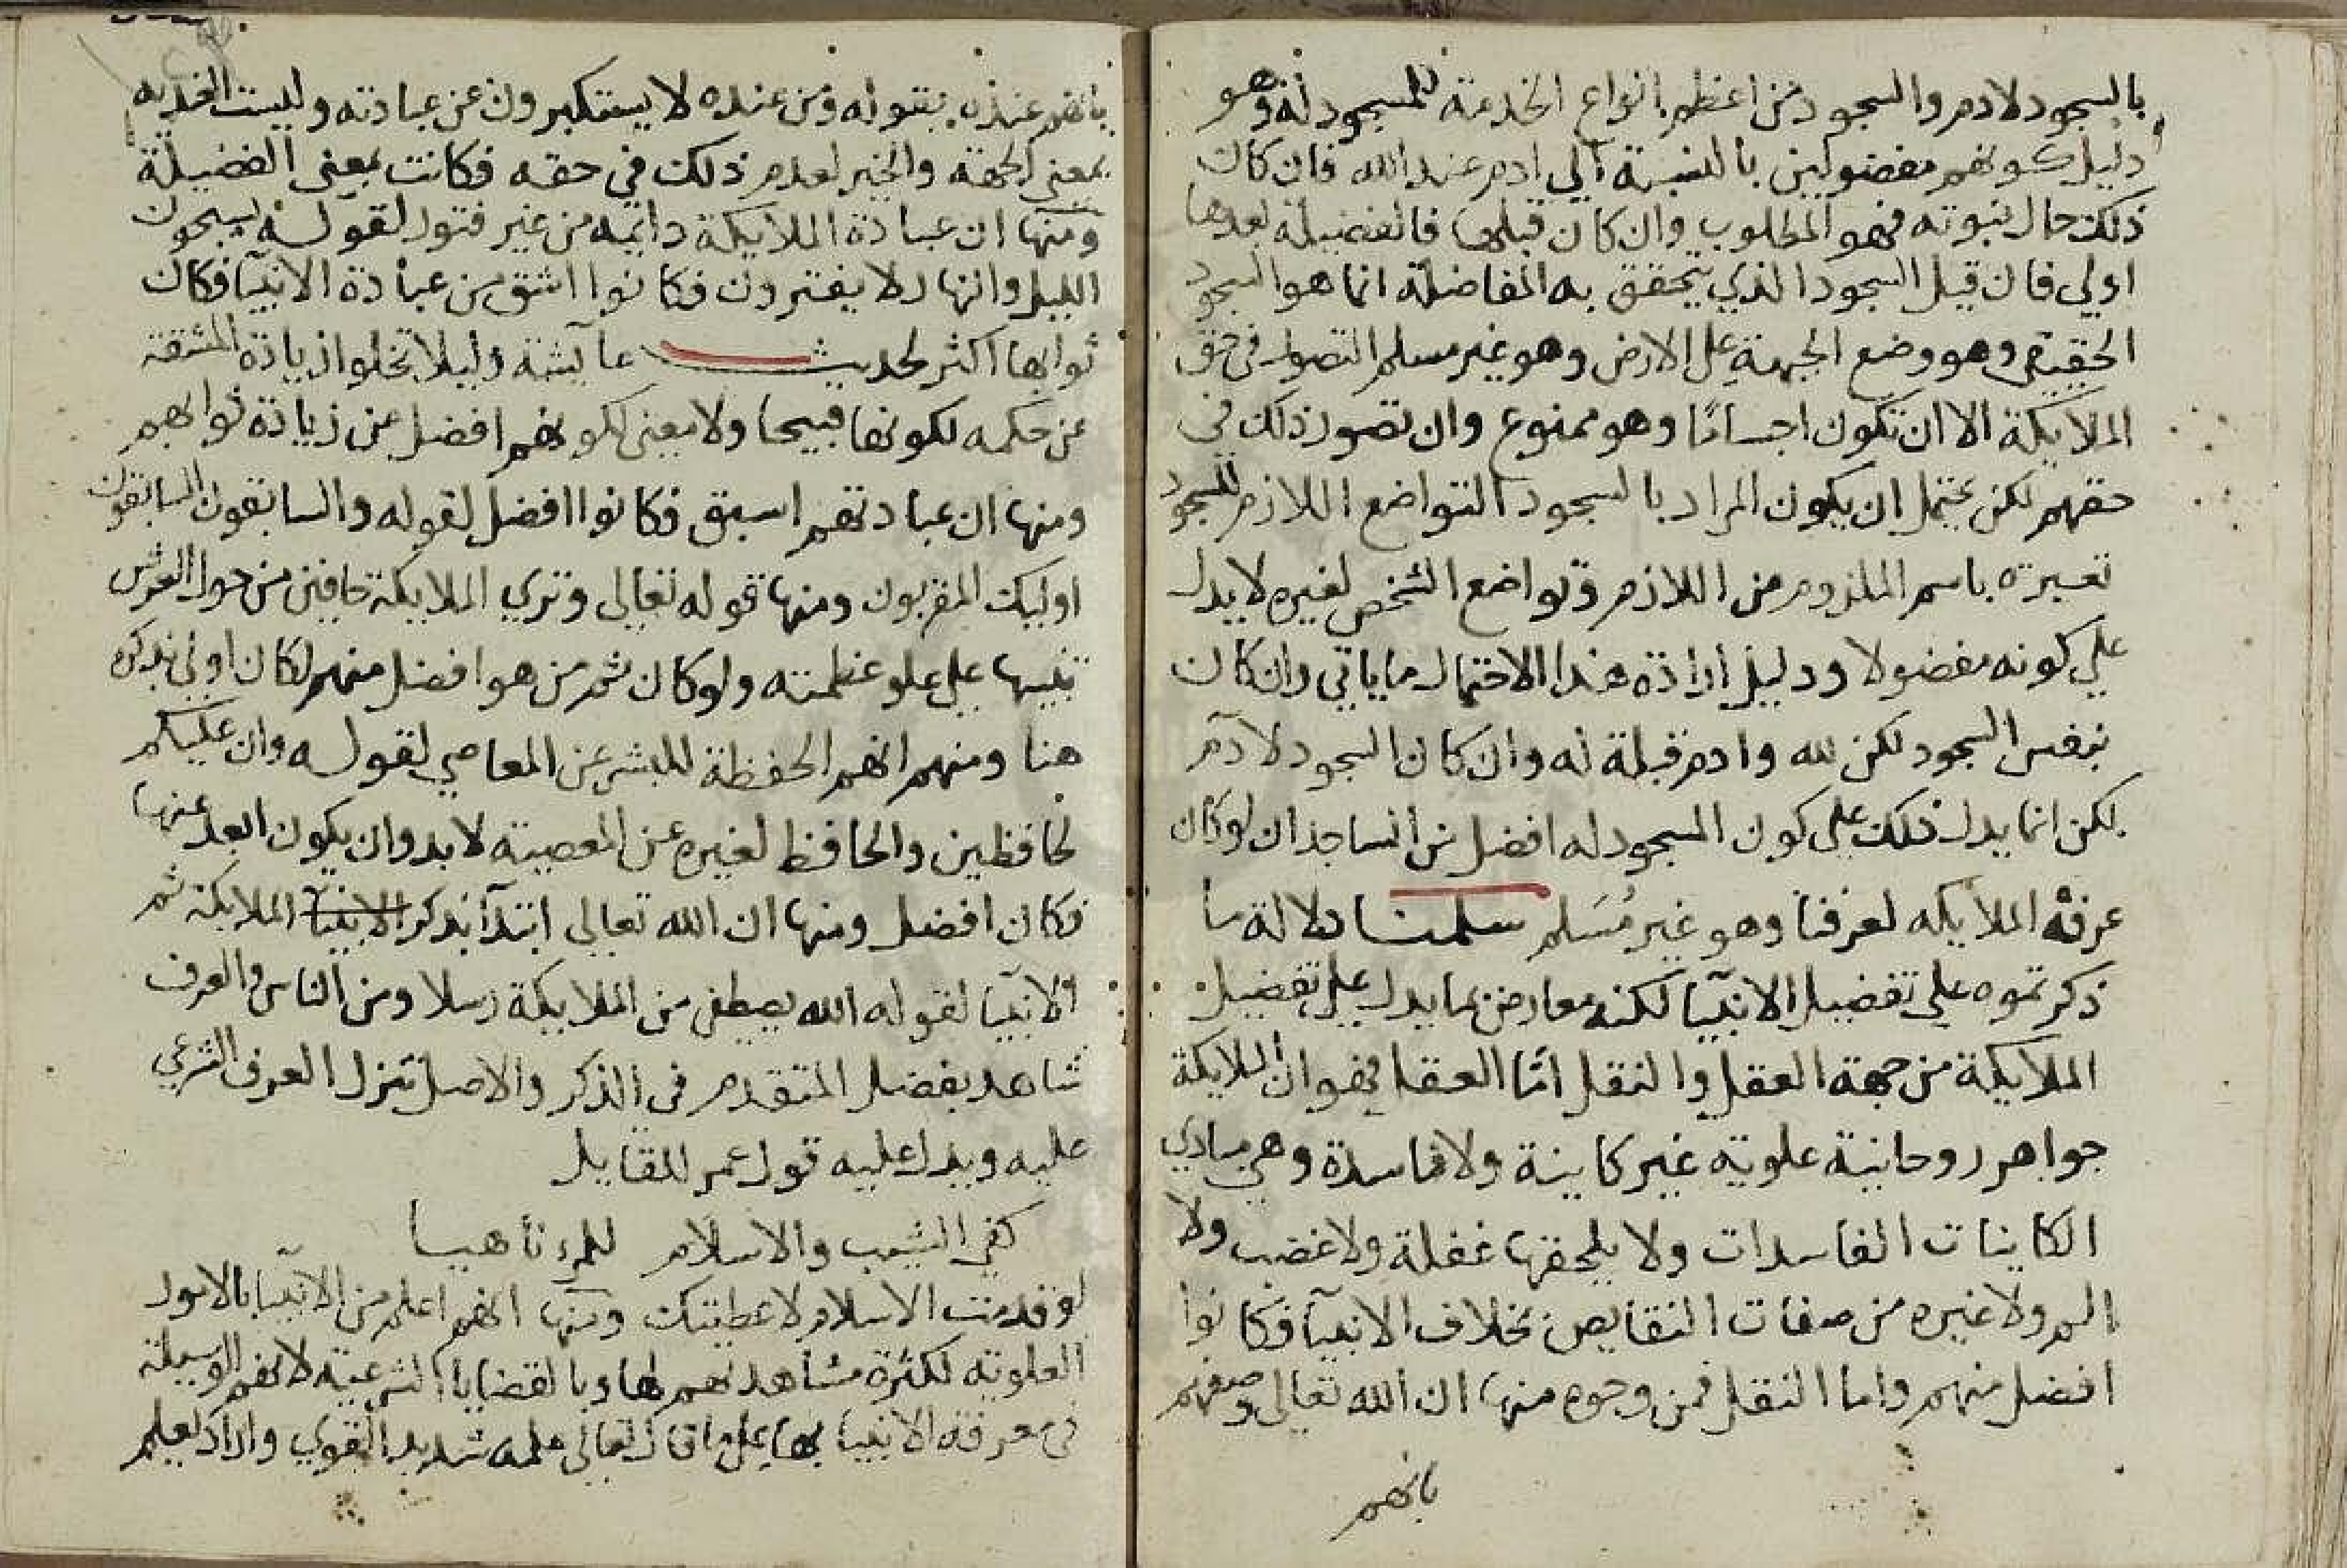 بالسجود لادم والسجود من اعظم انواع الخدمة للمسجود له وهو
دليل كونهم مفضولين بالنسبة الي ادم عند الله فان كان
ذلك حال نبوته فهو المطلوب وان كان قبلها فالفضيلة بعدها
اولي فان قيل السجود الذي يتحقق به المفاضلة انما هو السجود
الحقيقي وهو وضع الجبهة على الارض وهو غير مسلم التصور في حق
الملايكة الا ان تكون اجسامًا وهو ممنوع وان تصور ذلك في
حقهم لكن يحتمل ان يكون المراد بالسجود التواضع اللازم للسجود
تعبيره باسم الملزوم من اللازم وتواضع الشخص لغيره لا يدل
علي كونه مفضولا ودليل ارادة هذا الاحتمال ما ياتي وان كان
نفس السجود لكن لله وادم قبلة له وان كان السجود لآدم
لكن انما يدل ذلك على كون المسجود له افضل من الساجد ان لو كان
عرفُ الملايكه لعرفنا وهو غير مُسَلم سلمنا دلالة ما
ذكرتموه علي تفضيل الانبيآ لكنه معارض بما يدل على تفضيل
الملايكة من جهة العقل والنقل امّا العقل فهو ان الملايكة
جواهر روحانية علوية غير كاينة ولا فاسدة وهي مبادي
الكاينات الفاسدات ولا يلحقها غفلة ولا غضب ولا
الم ولا غيره من صفات النقايص بخلاف الانبيآ فكانوا
افضل منهم واما النقل فمن وجوه منها ان الله تعالى وصفهم
بانهم
بانهم عنده بقوله ومن عنده لا يستكبرون عن عبادته وليست العنديه
بمعني الجهة والحيز لعدم ذلك في حقه فكانت بمعني الفضيلة
ومنها ان عبادة الملايكة دايمه من غير فتور لقوله يسبحون
الليل والنهار لا يفترون فكانوا اشق من عبادة الانبيآ فكان
ثوابها اكثر لحديث عايشة وليلا تخلوا زيادة المشقة
عن حكمه لكونها قبيحا ولا معني لكونهم افضل من زيادة ثوابهم
ومنها ان عبادتهم اسبق فكانوا افضل لقوله والسابقون السابقون
اوليك المقربون ومنها قوله تعالى وتري الملايكة حافين من حول العرش
تنبيها على علو عظمته ولو كان ثم من هو افضل منهم لكان اولي بذكره
هنا ومنهم انهم الحفظة للبشر عن المعاصي لقوله وان عليكم
لحافظين والحافظ لغيره عن المعصية لا بد وان يكون ابعد عنها
فكان افضل ومنها ان الله تعالى ابتدآ بذكر الانبيآ الملايكة ثم
الانبيآ لقوله الله يصطفي من الملايكة رسلا ومن الناس والعرف
شاهد بفضل المتقدم في الذكر والاصل تنزل العرف الشرعي
عليه ويدل عليه قول عمر للقايل
كفي الشيب والاسلام للمرء ناهيا
لو قدمت الاسلام لاعطيتك ومنها انهم اعلم من الانبيآ بالامور
العلوية لكثرة مشاهدتهم لها وبالقضايا الشرعية لانهم الوسيلة
في معرفة الانبيآ بها على ما قال تعالى علمه شديد القوي واراد بعلم